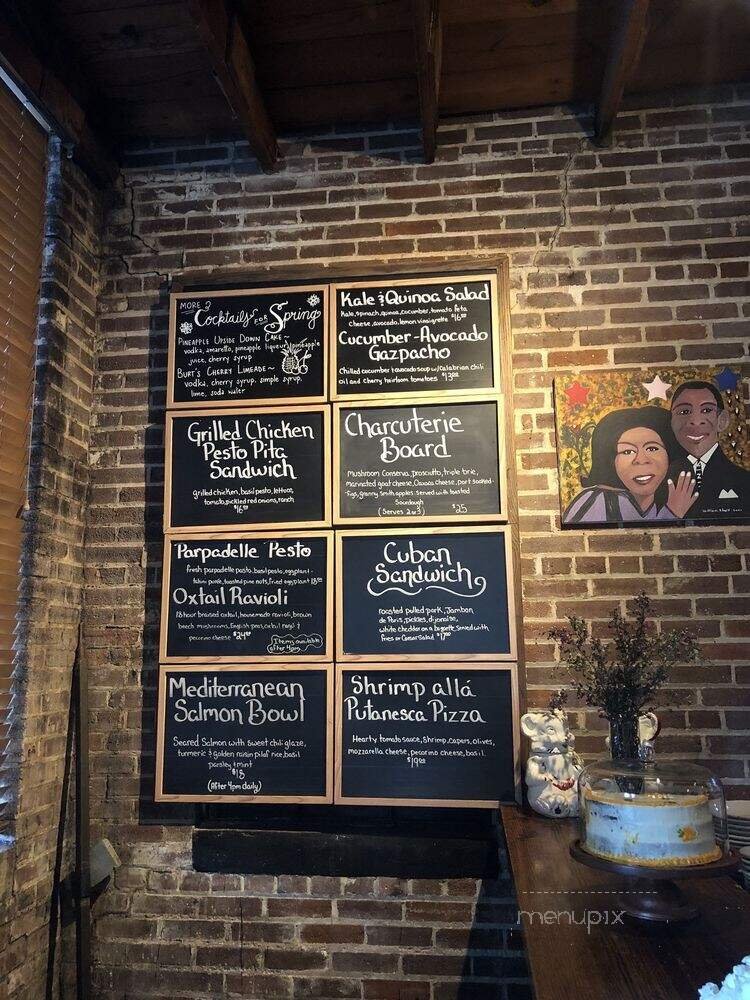 MORE
Cocktails FOR Spring
PINEAPPLE UPSIDE DOWN CAKE~
vodka, amaretto, pineapple liqueur, pineapple
juice, cherry syrup
BURT'S CHERRY LIMEADE~
vodka, cherry syrup, simple syrup,
lime, soda water
Kale & Quinoa Salad
Kale, spinach, quinoa, cucumber, tomato feta
cheese, avocado, lemon vinaigrette $16.00
Cucumber-Avocado
Gazpacho
Chilled cucumber & avocado soup w/Calabrian chili
oil and cherry heirloom tomatoes $13.00
Grilled Chicken
Pesto Pita
Sandwich
grilled chicken, basil pesto, lettuce,
tomato, pickled red onions, ranch
$16
Charcuterie
Board
Mushroom Conserva, prosciutto, triple brie,
marinated goat cheese, Oaxaca cheese, port soaked
figs, granny smith apples. served with toasted
Sourdough
(Serves 2 or 3) $25
Parpadelle Pesto
fresh parpadelle pasta, basil pesto, eggplant-
tahini purée, toasted pine nuts, fried eggplant
Oxtail Ravioli
18 hour braised oxtail, housemade ravioli, brown
beech mushrooms, English peas, oxtail ragu &
pecorino cheese $24.00
(Items available
after 4pm)
Cuban
Sandwich
roasted pulled pork, Jambon
de Paris, pickles, dijonaise,
white cheddar on a baguette. Served with
fries or Caesar Salad $17.00
Mediterranean
Salmon Bowl
Seared Salmon with sweet chili glaze,
turmeric & golden raisin pilaf rice, basil
parsley & mint
$18
(After 4pm daily)
Shrimp allá
Putanesca Pizza
Hearty tomato sauce, Shrimp, capers, olives,
mozzarella cheese, pecorino cheese, basil.
$19.00
menupix